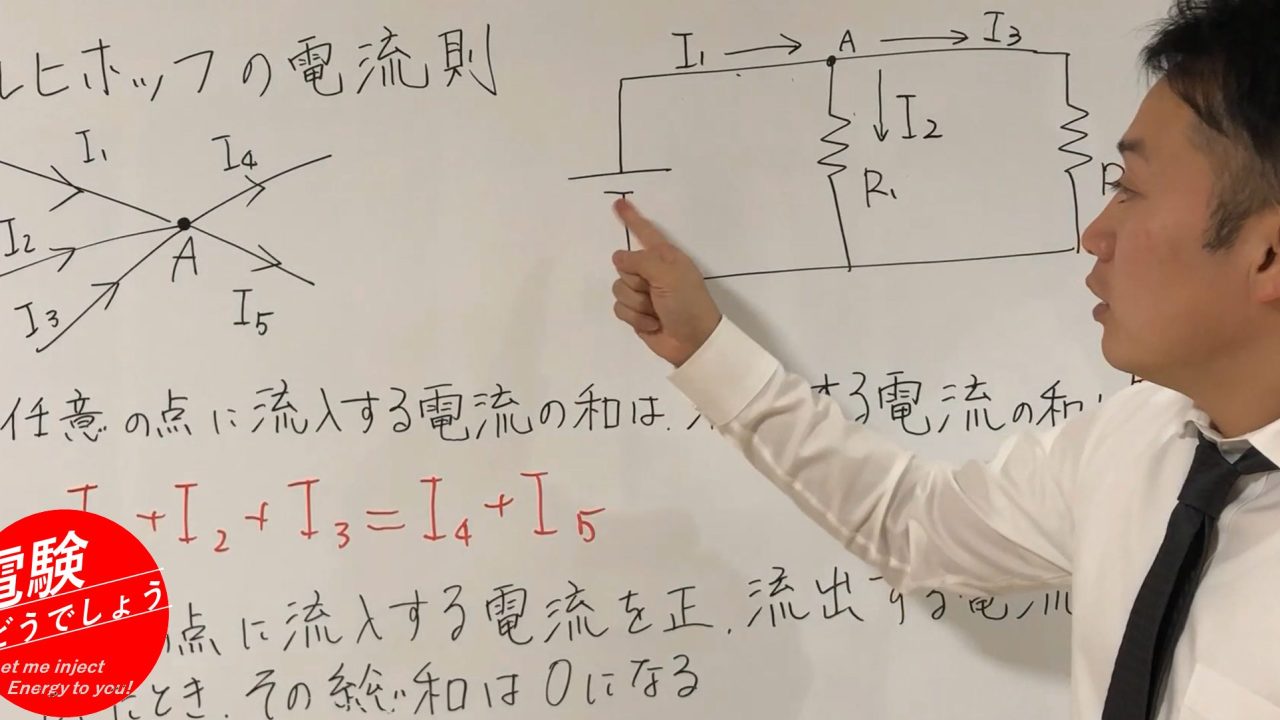 ルヒホッフの電流則
I₁ A I₃
I₂
R₁
I₁ I₄
I₂
A
I₃ I₅
任意の点に流入する電流の和は、する電流の和
I +I₂+I₃=I₄+I₅
点に流入する電流を正、流出する電流
たとき、その総和は0になる
電験
どうでしょう
et me inject
Energy to you!